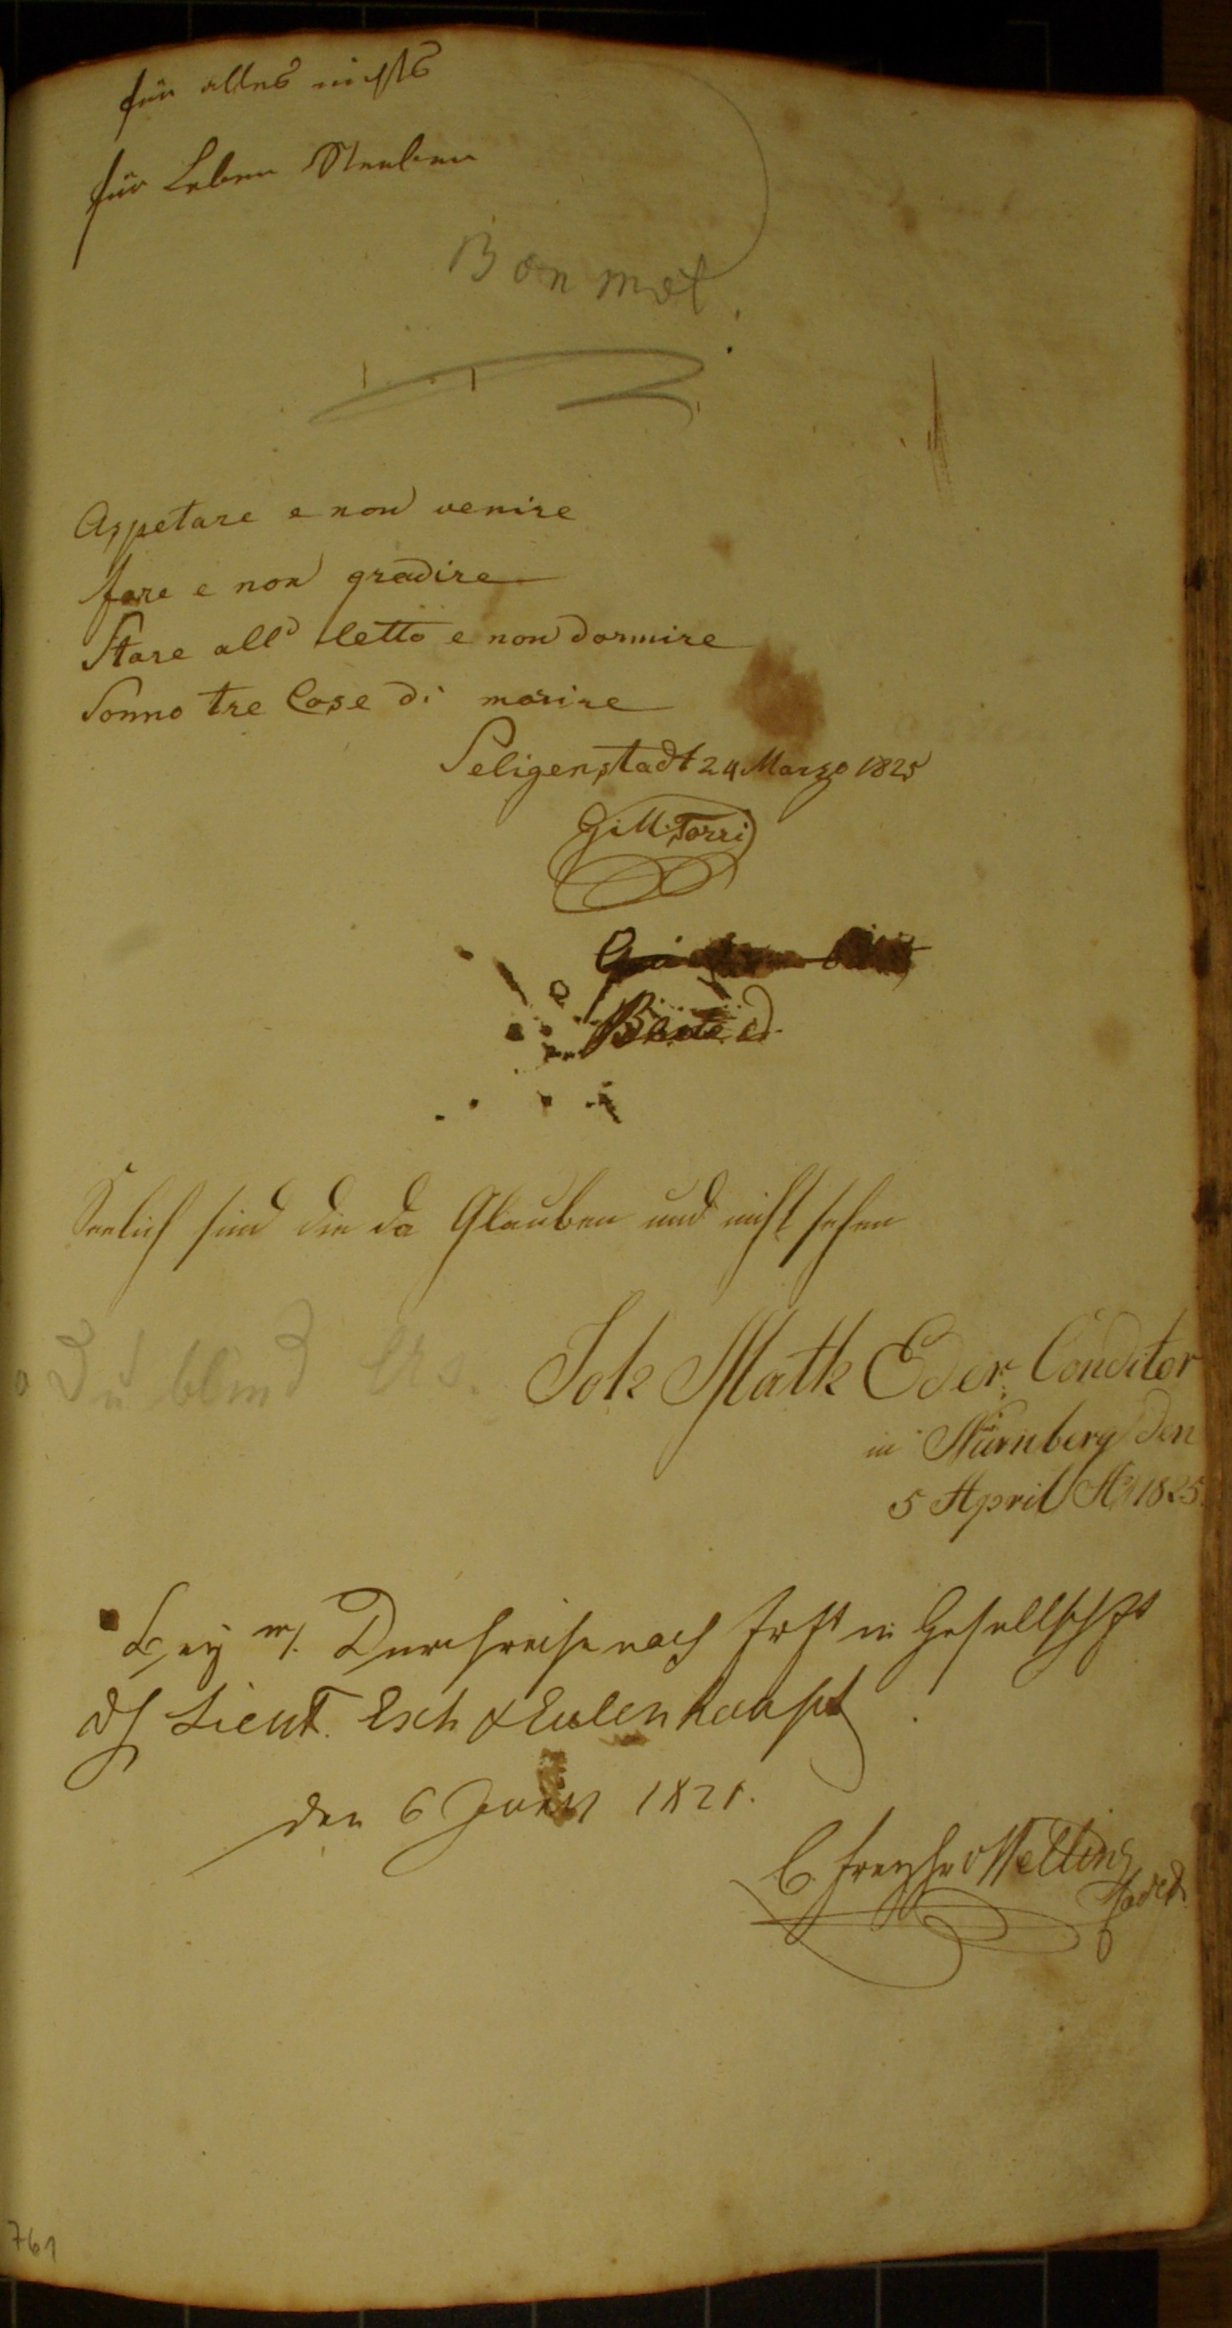 für alles nichts
für Leben Sterben
Bon mot.
Aspetare e non venire
fare e non gradire
Stare all letto e non dormire
Sonno tre Cose di morire
Seligenstadt 24 Marzo 1825
G: M: Torri
Seelich sind die da Glauben und nicht sehen
Du blind
Joh Math Eder Conditor
in Nürnberg den
5 April A° 1825
Bey m/. Durchreise nach in Gesellschft
d H Lieut. Esch & Eulenhaupt
den 6 Juny 1821.
C. Freyhr v Welling
761